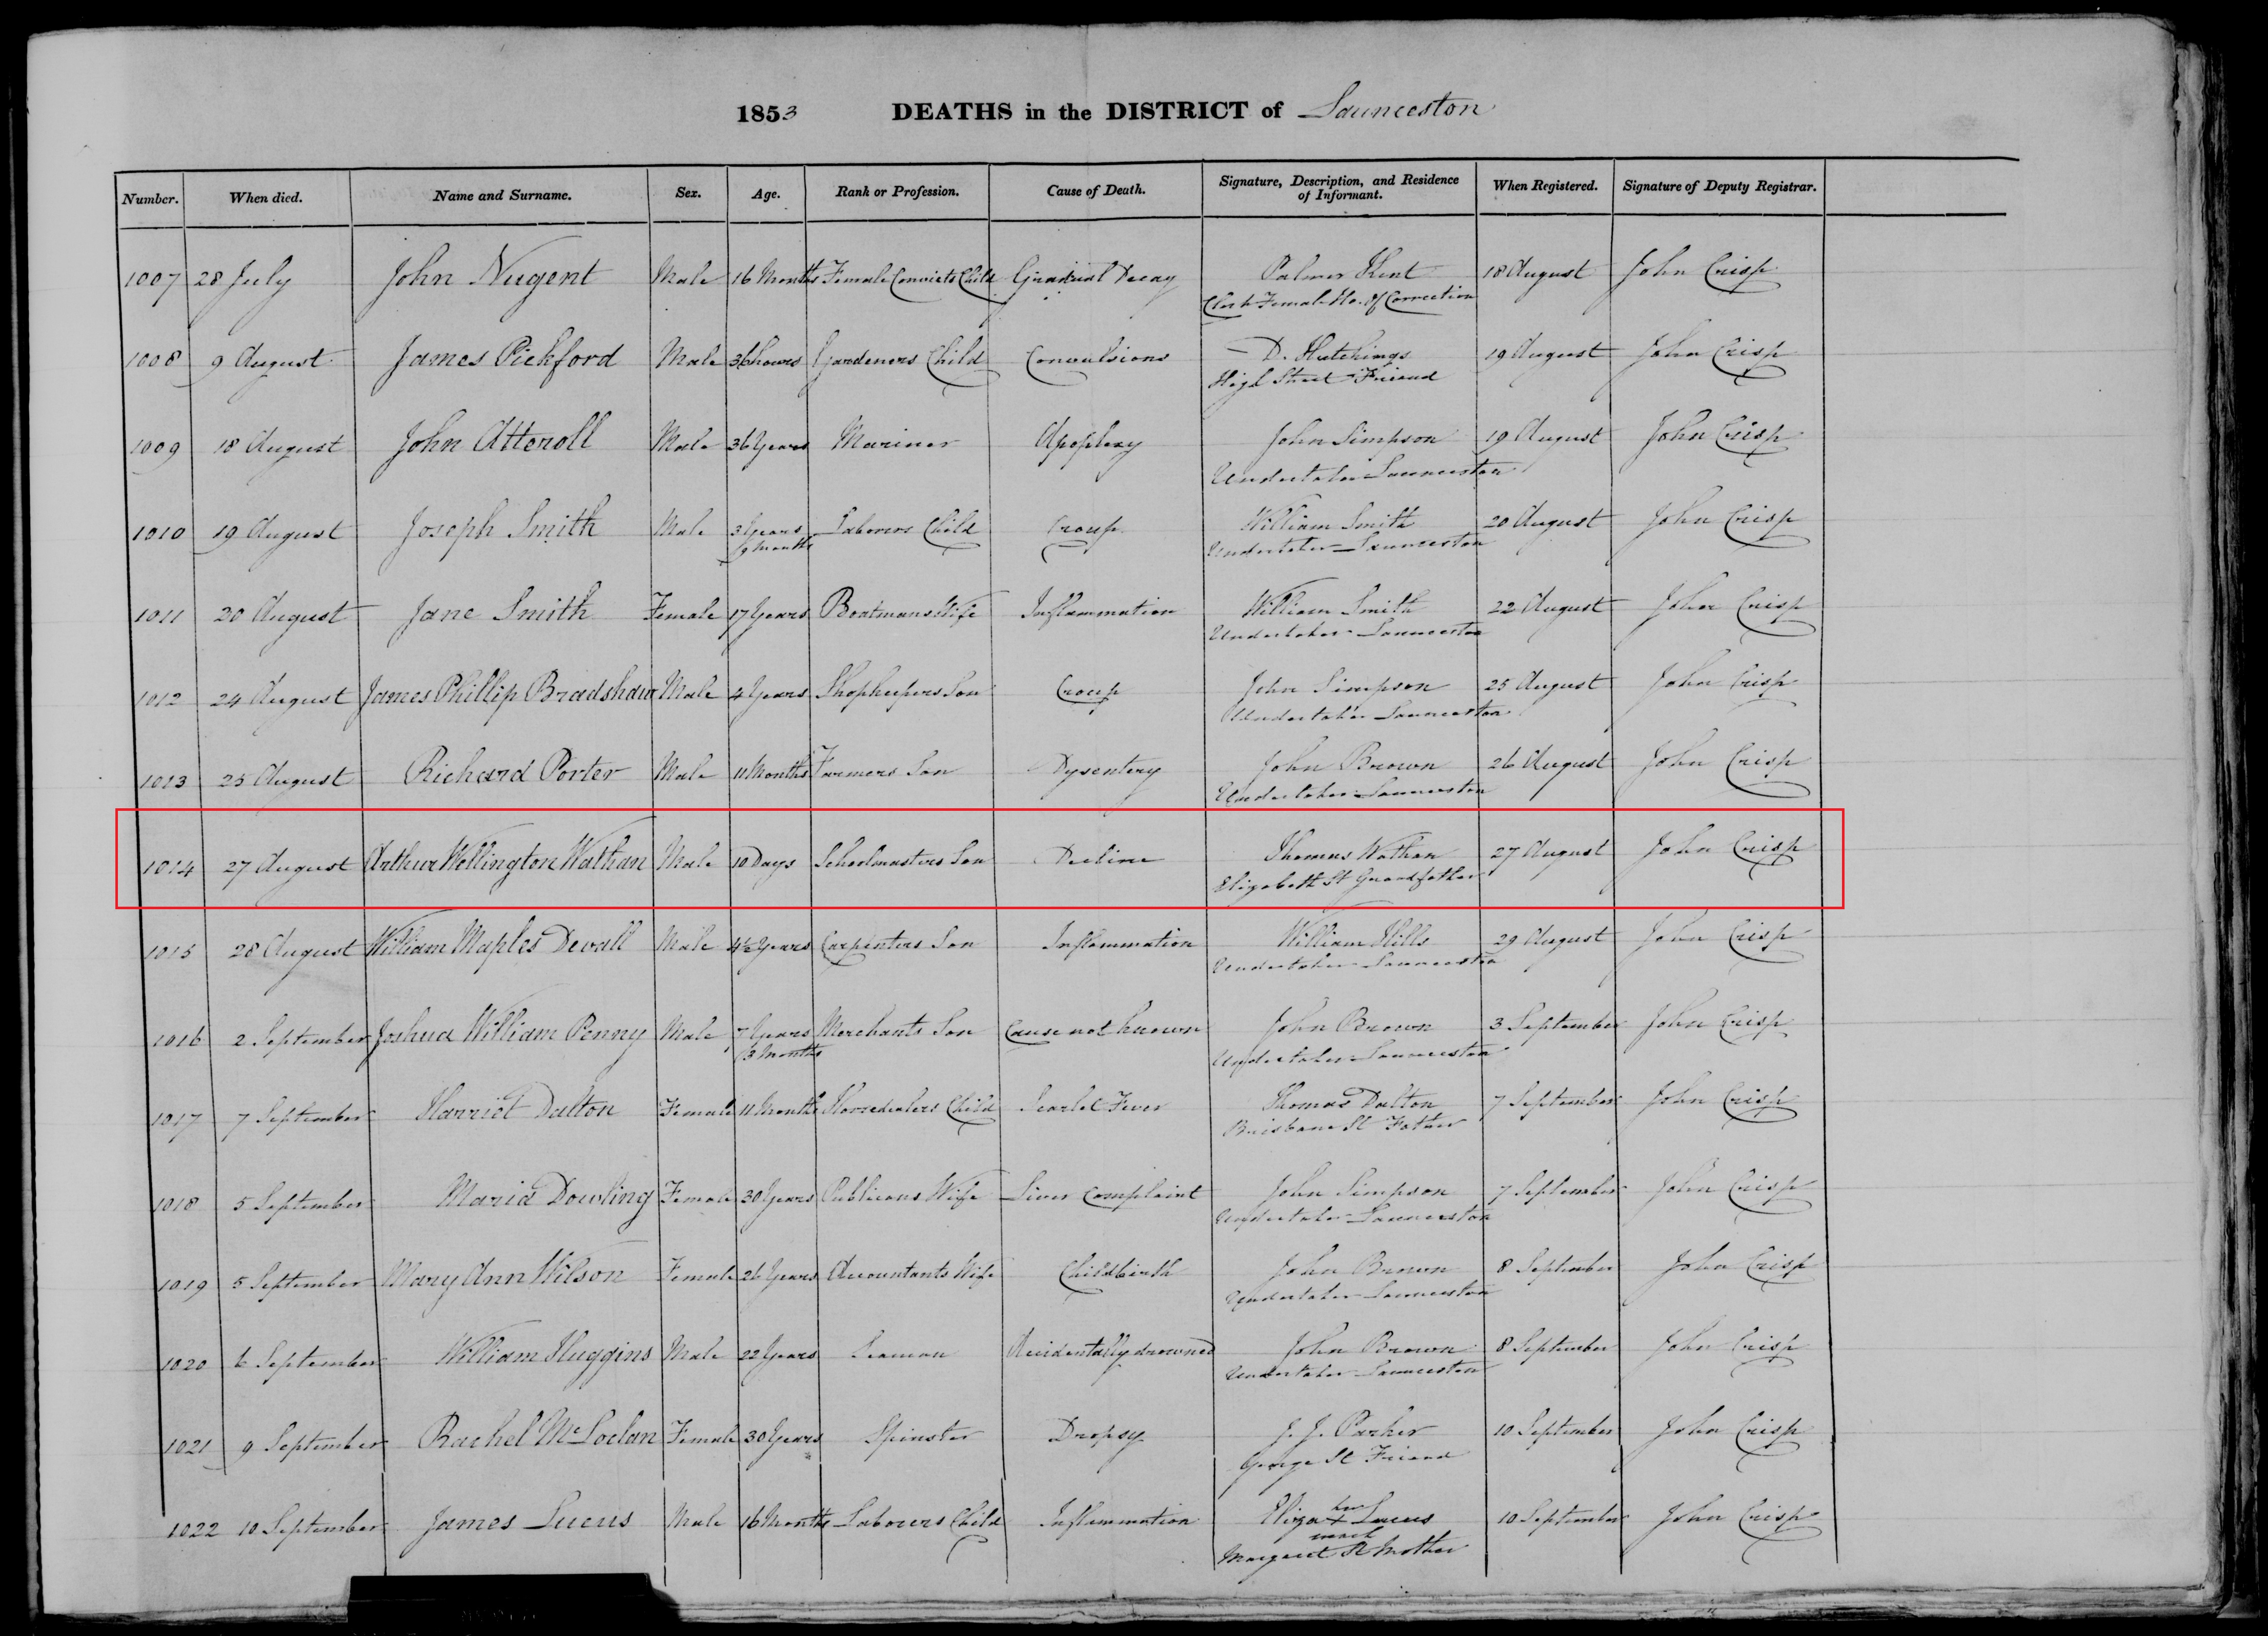 1853 DEATHS in the DISTRICT of Launceston
Number. When died. Name and Surname. Sex. Age. Rank or Profession. Cause of Death. Signature, Description, and Residence of Informant. When Registered. Signature of Deputy Registrar.
1007 28 July John Nugent Male 16 Months Female Convicts Child Gradual Decay Palmer Kent 18 August John Crisp
Clerk Female Ho. of Correction
1008 9 August James Pickford Male 36 hours Gardeners Child Convulsions D. Hutchings 19 August John Crisp
High Street Friend
1009 18 August John Atteroll Male 36 Years Mariner Apoplexy John Simpson 19 August John Crisp
Undertaker Launceston
1010 19 August Joseph Smith Male 3 Years Labourers Child Croup William Smith 20 August John Crisp
9 months Undertaker Launceston
1011 20 August Jane Smith Female 17 Years Boatmans Wife Inflammation William Smith 22 August John Crisp
Undertaker Launceston
1012 24 August James Phillip Bradshaw Male 4 Years Shopkeepers Son Croup John Simpson 25 August John Crisp
Undertaker Launceston
1013 25 August Richard Porter Male 11 Months Farmers Son Dysentery John Brown 26 August John Crisp
Undertaker Launceston
1014 27 August Arthur Wellington Wathan Male 10 Days Schoolmasters Son Decline Thomas Wathan 27 August John Crisp
Elizabeth St Grandfather
1015 28 August William Maples Devall Male 4½ Years Carpenters Son Inflammation William Hills 29 August John Crisp
Undertaker Launceston
1016 2 September Joshua William Penny Male 7 Years Merchants Son Cause not known John Brown 3 September John Crisp
3 Months Undertaker Launceston
1017 7 September Harriet Dalton Female 11 Months Horsedealers Child Scarlet Fever Thomas Dalton 7 September John Crisp
Brisbane St Father
1018 5 September Maria Dowling Female 30 Years Publicans Wife Liver Complaint John Simpson 7 September John Crisp
Undertaker Launceston
1019 5 September Mary Ann Wilson Female 26 Years Accountants Wife Childbirth John Brown 8 September John Crisp
Undertaker Launceston
1020 6 September William Huggins Male 22 Years Seaman Accidentally drowned John Brown 8 September John Crisp
Undertaker Launceston
1021 9 September Rachel McLoclan Female 30 Years Spinster Dropsy J. J. Parker 10 September John Crisp
George St Friend
1022 10 September James Lucus Male 16 Months Labourers Child Inflammation Eliza her x mark Lucus 10 September John Crisp
Margaret St Mother